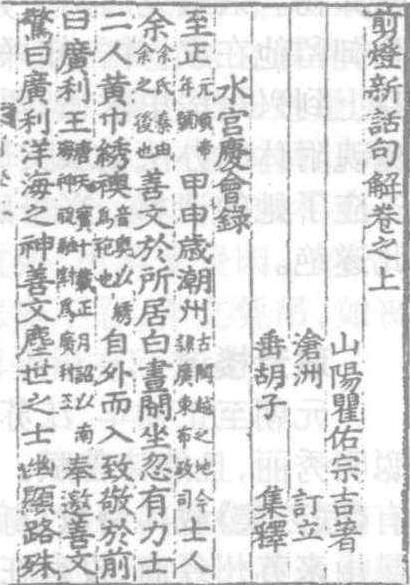 剪燈新話句解卷之上
山陽瞿佑宗吉著
滄洲 訂立
垂胡子 集釋
水宮慶會錄
至正元順帝年號甲申歲潮州古閩越之地今隸廣東布政司士人
余余氏秦由余之後也善文於所居白晝閑坐忽有力士
二人黃巾綉襖音奧以綉爲袍也自外而入致敬於前
曰廣利王唐天寶十載正月詔以南海神祝融封爲廣利王奉邀善文
驚曰廣利洋海之神善文塵世之士幽顯路殊